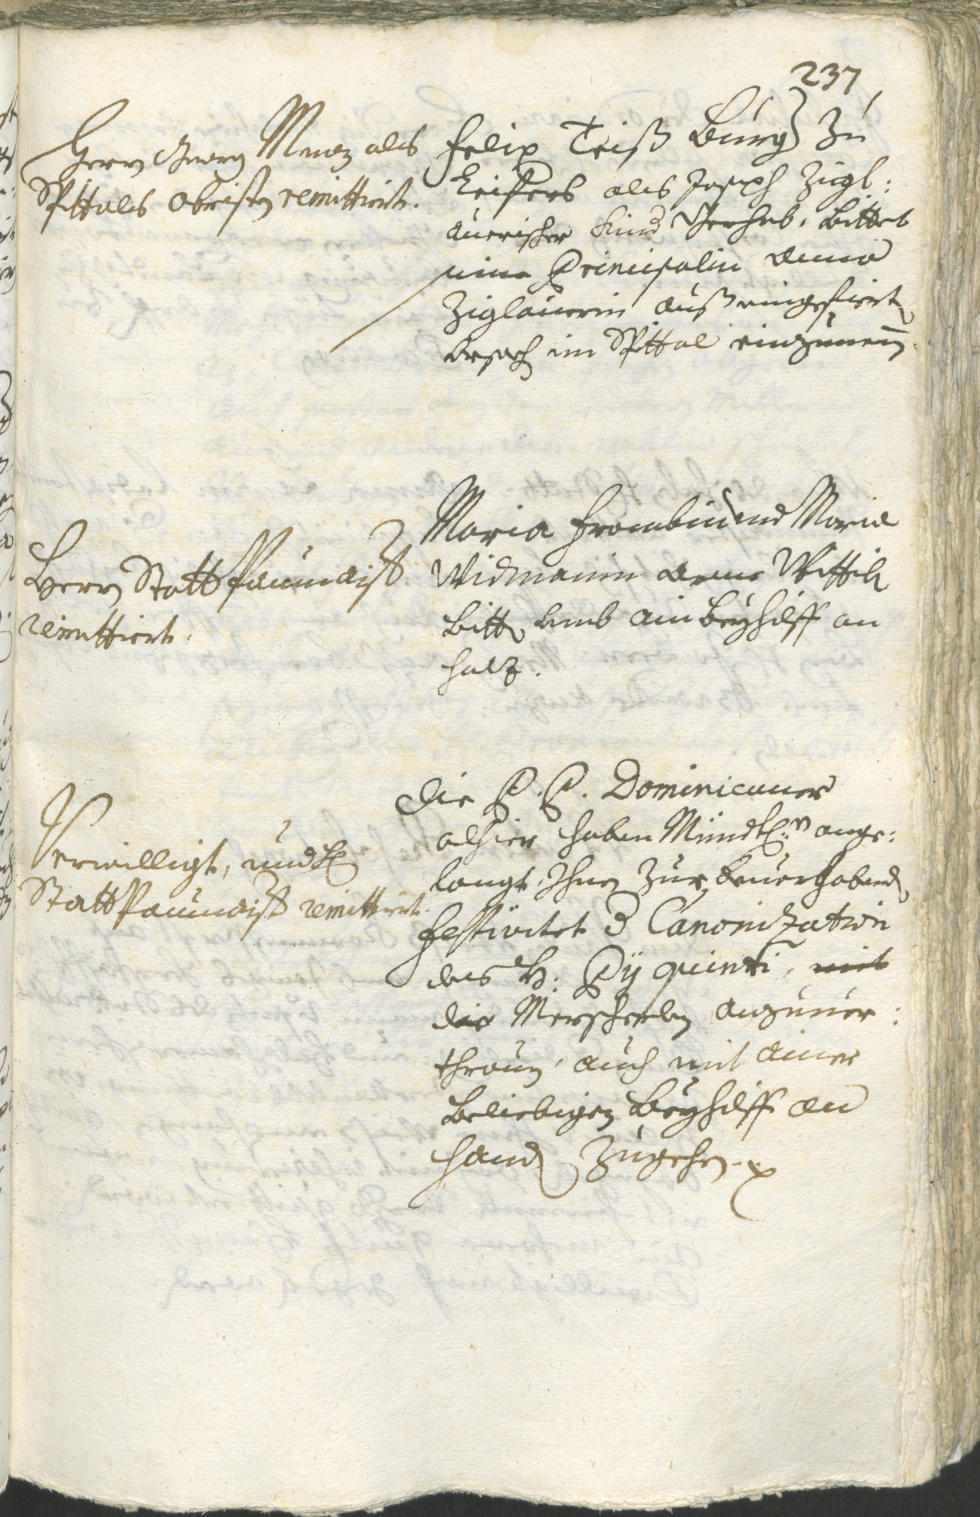 237
Herrn Georg Menz als
Spittals obristen remittiert.
Felix Teiß Burg. zu
Leifers als Joseph Zigl:
auerischer Kind Gerhab, bittet
seine Principalin Anna
Ziglauerin auß eingefierten
Ursach im Spittal einzunemen
Herrn Statt Paumaister
remittiert.
Maria Frombin und Maria
Widmanin arme Wittib
bitten umb ain Beyhilff an
holz.
Verwilligt, und H
Statt Paumaister remittiert.
Die P. P. Dominicaner
alhier haben Mündtl:n ange:
langt, Ihnen zur bevorhabenden
Festivitet d Canonization
des H: Pij quinti,
die anzuver:
thrauen, auch mit ainer
beliebigen Beyhilff an
Hand zugehen.